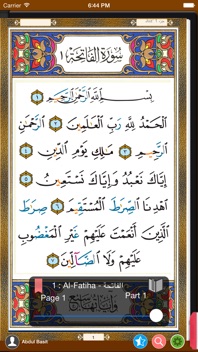 Carrier
6:44 PM
سُورَةُ الفَاتِحَةِ ١
بِسْمِ ٱللَّهِ ٱلرَّحْمَٰنِ ٱلرَّحِيمِ ١
ٱلْحَمْدُ لِلَّهِ رَبِّ ٱلْعَٰلَمِينَ ٢ ٱلرَّحْمَٰنِ
ٱلرَّحِيمِ ٣ مَٰلِكِ يَوْمِ ٱلدِّينِ ٤
إِيَّاكَ نَعْبُدُ وَإِيَّاكَ نَسْتَعِينُ ٥
ٱهْدِنَا ٱلصِّرَٰطَ ٱلْمُسْتَقِيمَ ٦ صِرَٰطَ
ٱلَّذِينَ أَنْعَمْتَ عَلَيْهِمْ غَيْرِ ٱلْمَغْضُوبِ
عَلَيْهِمْ وَلَا ٱلضَّآلِّينَ ٧
1 : Al-Fatiha - الفاتحة
Page 1
Part 1
1
Abdul Basit